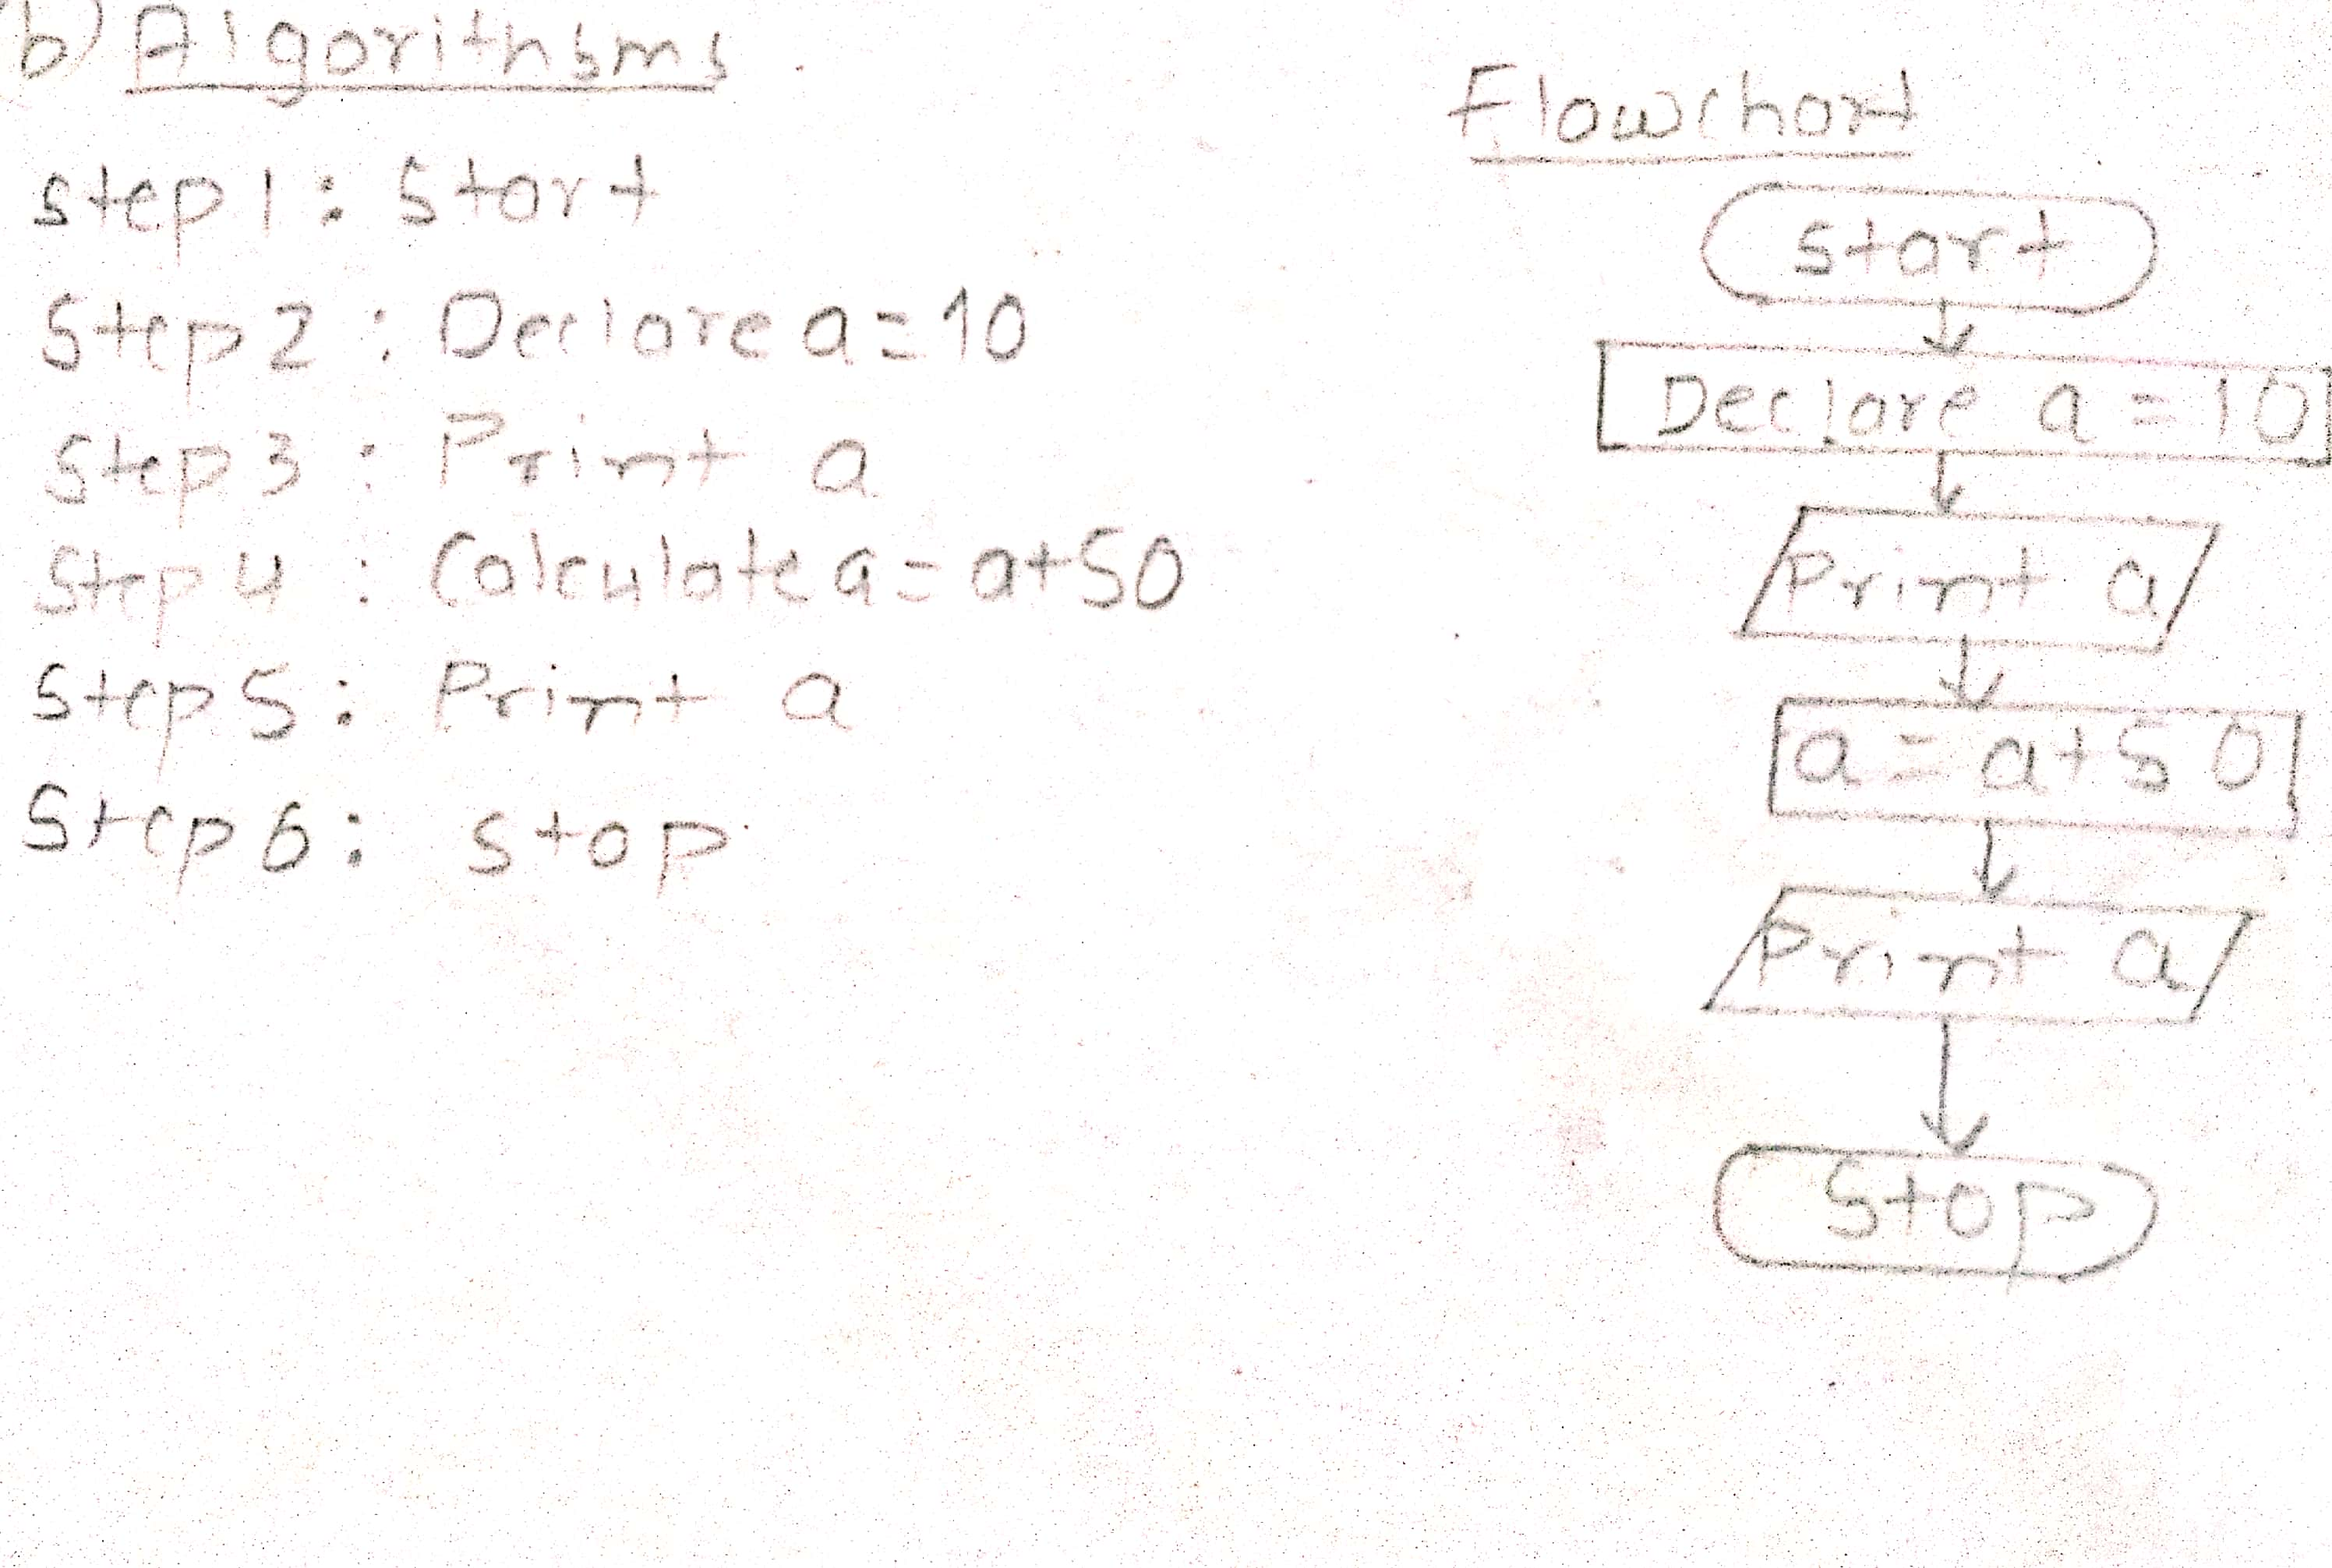 b) Algorithsms
Step 1 : Start
Step 2 : Declare a = 10
Step 3 : Print a
Step 4 : Calculate a = a + 50
Step 5 : Print a
Step 6 : Stop
Flowchart
Start
Declare a = 10
Print a
a = a + 50
Print a
Stop